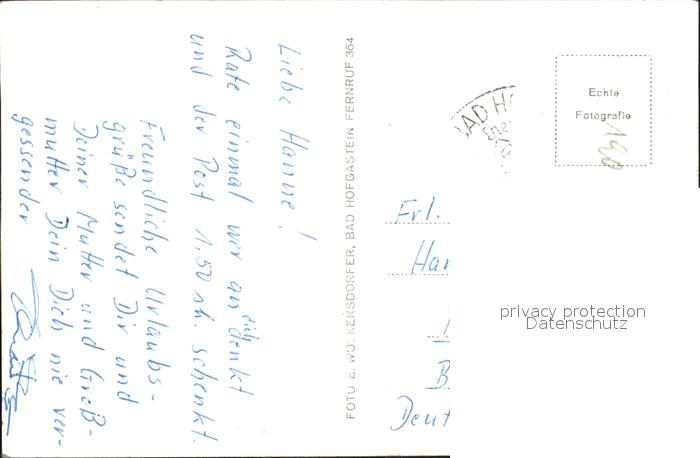 Liebe Hanne!
Rate einmal wer an dich denkt
und der Post 1.50 sh. schenkt.
Freundliche Urlaubs-
grüße sendet Dir und
Deiner Mutter und Groß-
mutter Dein Dich nie ver-
gessender
FOTO E. WOLKERSDORFER, BAD HOFGASTEIN FERNRUF 364
BAD H
Echte
Fotografie
190
Frl.
Han
B
Deut
privacy protection
Datenschutz